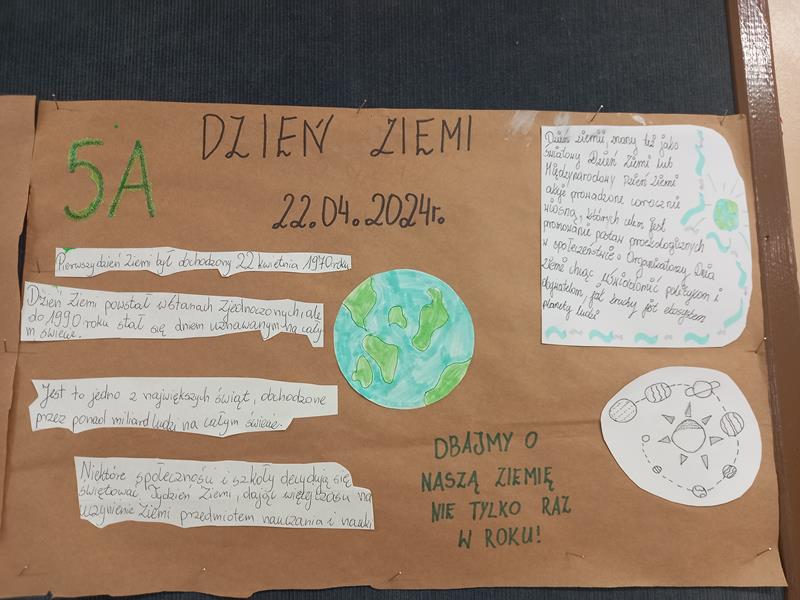 5A
DZIEŃ ZIEMI
22.04.2024r.
Pierwszy dzień Ziemi był obchodzony 22 kwietnia 1970 roku
Dzień Ziemi powstał w Stanach Zjednoczonych, ale
do 1990 roku stał się dniem uznawanym na cały
m świecie.
Jest to jedno z największych świąt, obchodzone
przez ponad miliard ludzi na całym świecie.
Niektóre społeczności i szkoły decydują się
świętować Tydzień Ziemi, dając więcej czasu na
uczynienie Ziemi przedmiotem nauczania i nauki
DBAJMY O
NASZĄ ZIEMIĘ
NIE TYLKO RAZ
W ROKU!
Dzień ziemii, znany też jako
Światowy Dzień Ziemi lub
Międzynarodowy Dzień Ziemi
akcje prowadzone corocznie
wiosną, których celem jest
promowanie postaw proekologicznych
w społeczeństwie. Organizatorzy Dnia
Ziemi chcąc uświadomić politykom i
obywatelom, jak kruchy jest ekosystem
planety ludzi